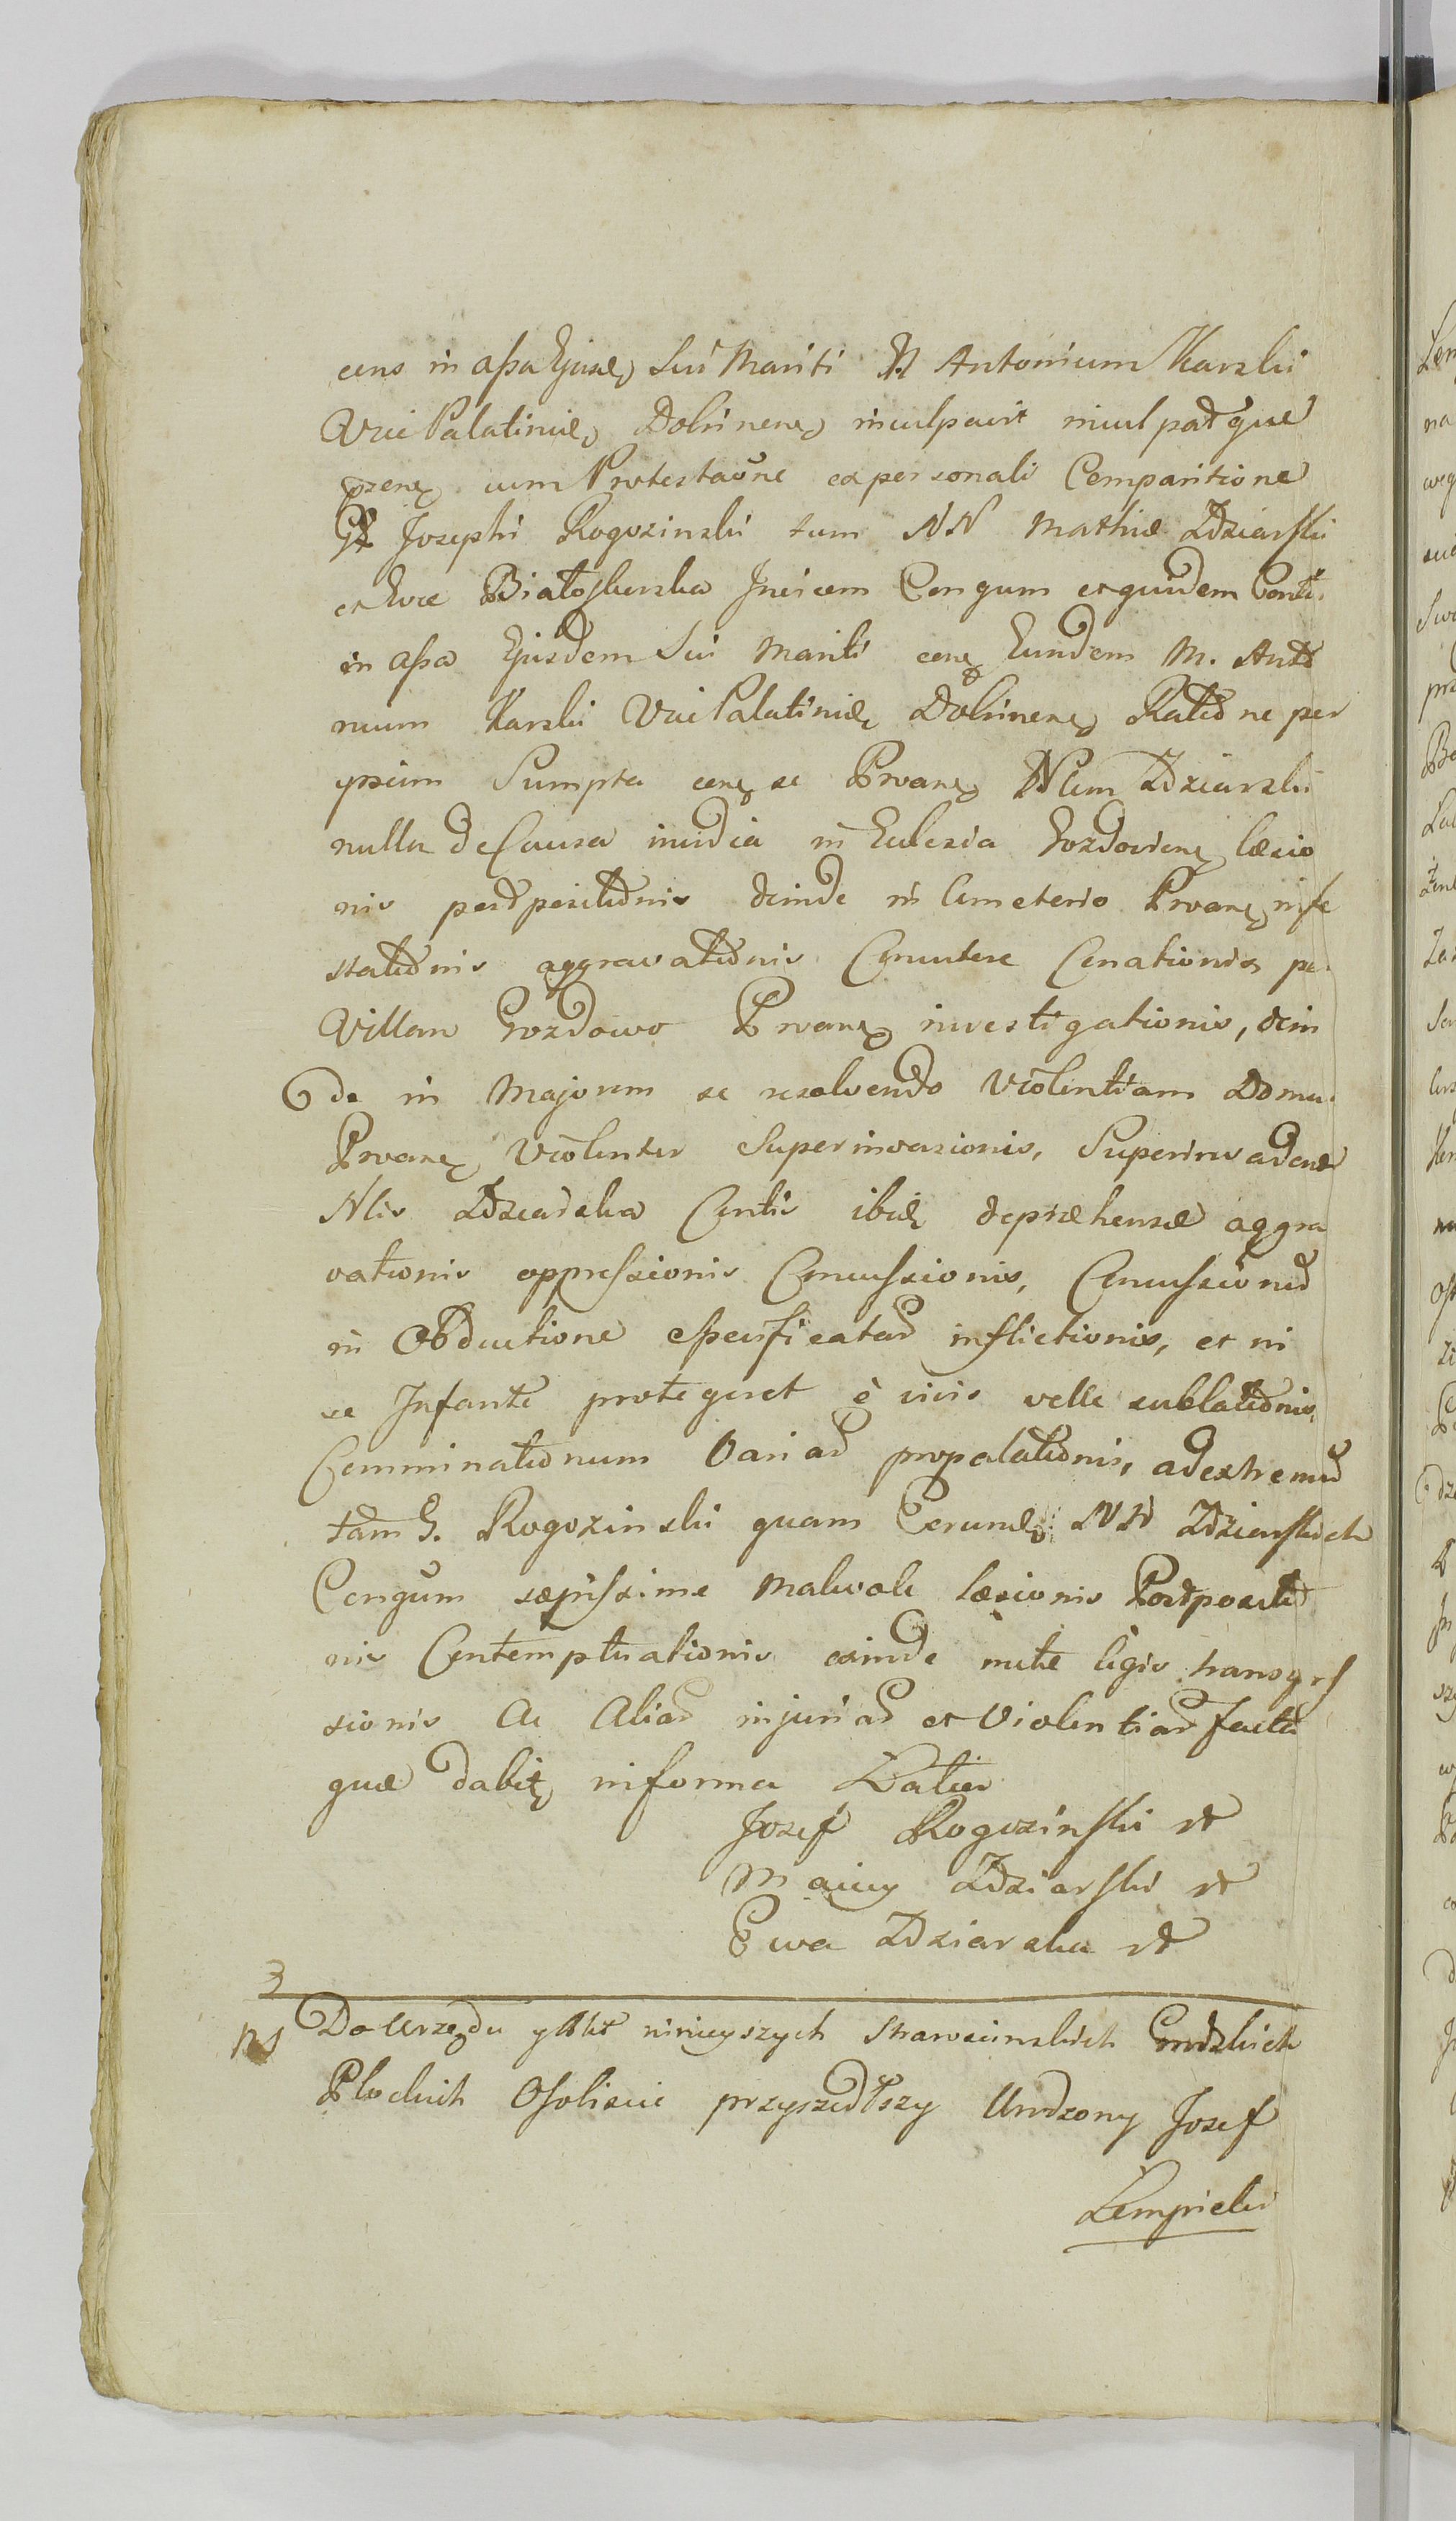 cens in assa Ejusd Sui Mariti M Antonium Karski
Vice Palatinid Dobrinens inculpavit inculpatque
psens cum Protestaōne ex personali Comparitione
G Josephi Rogozinski tum NN Mathiæ Zdziarski
et Evæ Białoskurska Invicem Congum et quidem Contis
in assa Ejusdem Sui Mariti cens Eundem M. Anto
nium Karski Vice Palatinid Dobrinens Ratione per
ipsum Sumpta cens se Prvans Nlem Zdziarski
nulla de Causa invidia in Eclesia Gozdoviens læsio
nis postpositionis deinde in Cemeterio Prvans infe
stationis aggravationis Conationis per
Villam Gozdowo Prvans investigationis, dein
de in Majorem se resolvendo Violentiam Domus
Prvans Violenter Superinvasionis, Superinvadendo
Nlis Zdziarska Contis ibid deprehensæ aggra
vationis oppressionis Concussionis, Concussionum
in Obductione specificatar inflictionis, et ni
se Infante protegeret è vivis velle sublationis,
Comminationum Variar propalationis, ad extremum
tam G. Rogozinski quam Eorund NN Zdziarskich
Congum sæpissime Malevole læsionis Postpositio
nis Contemptuationis exinde mltæ legis transgres
sionis Ac Aliar injuriar et Violentiar facta
quæ dabit in forma Latior
Jozef Rogozinski
Maciey Zdziarski
Ewa Zdziarska
3
ns Do Urzędu y Akt ninieyszych Starościnskich Grodzkich
Płockich Osobiscie przyszedłszy Urodzony Jozef
Lempicki